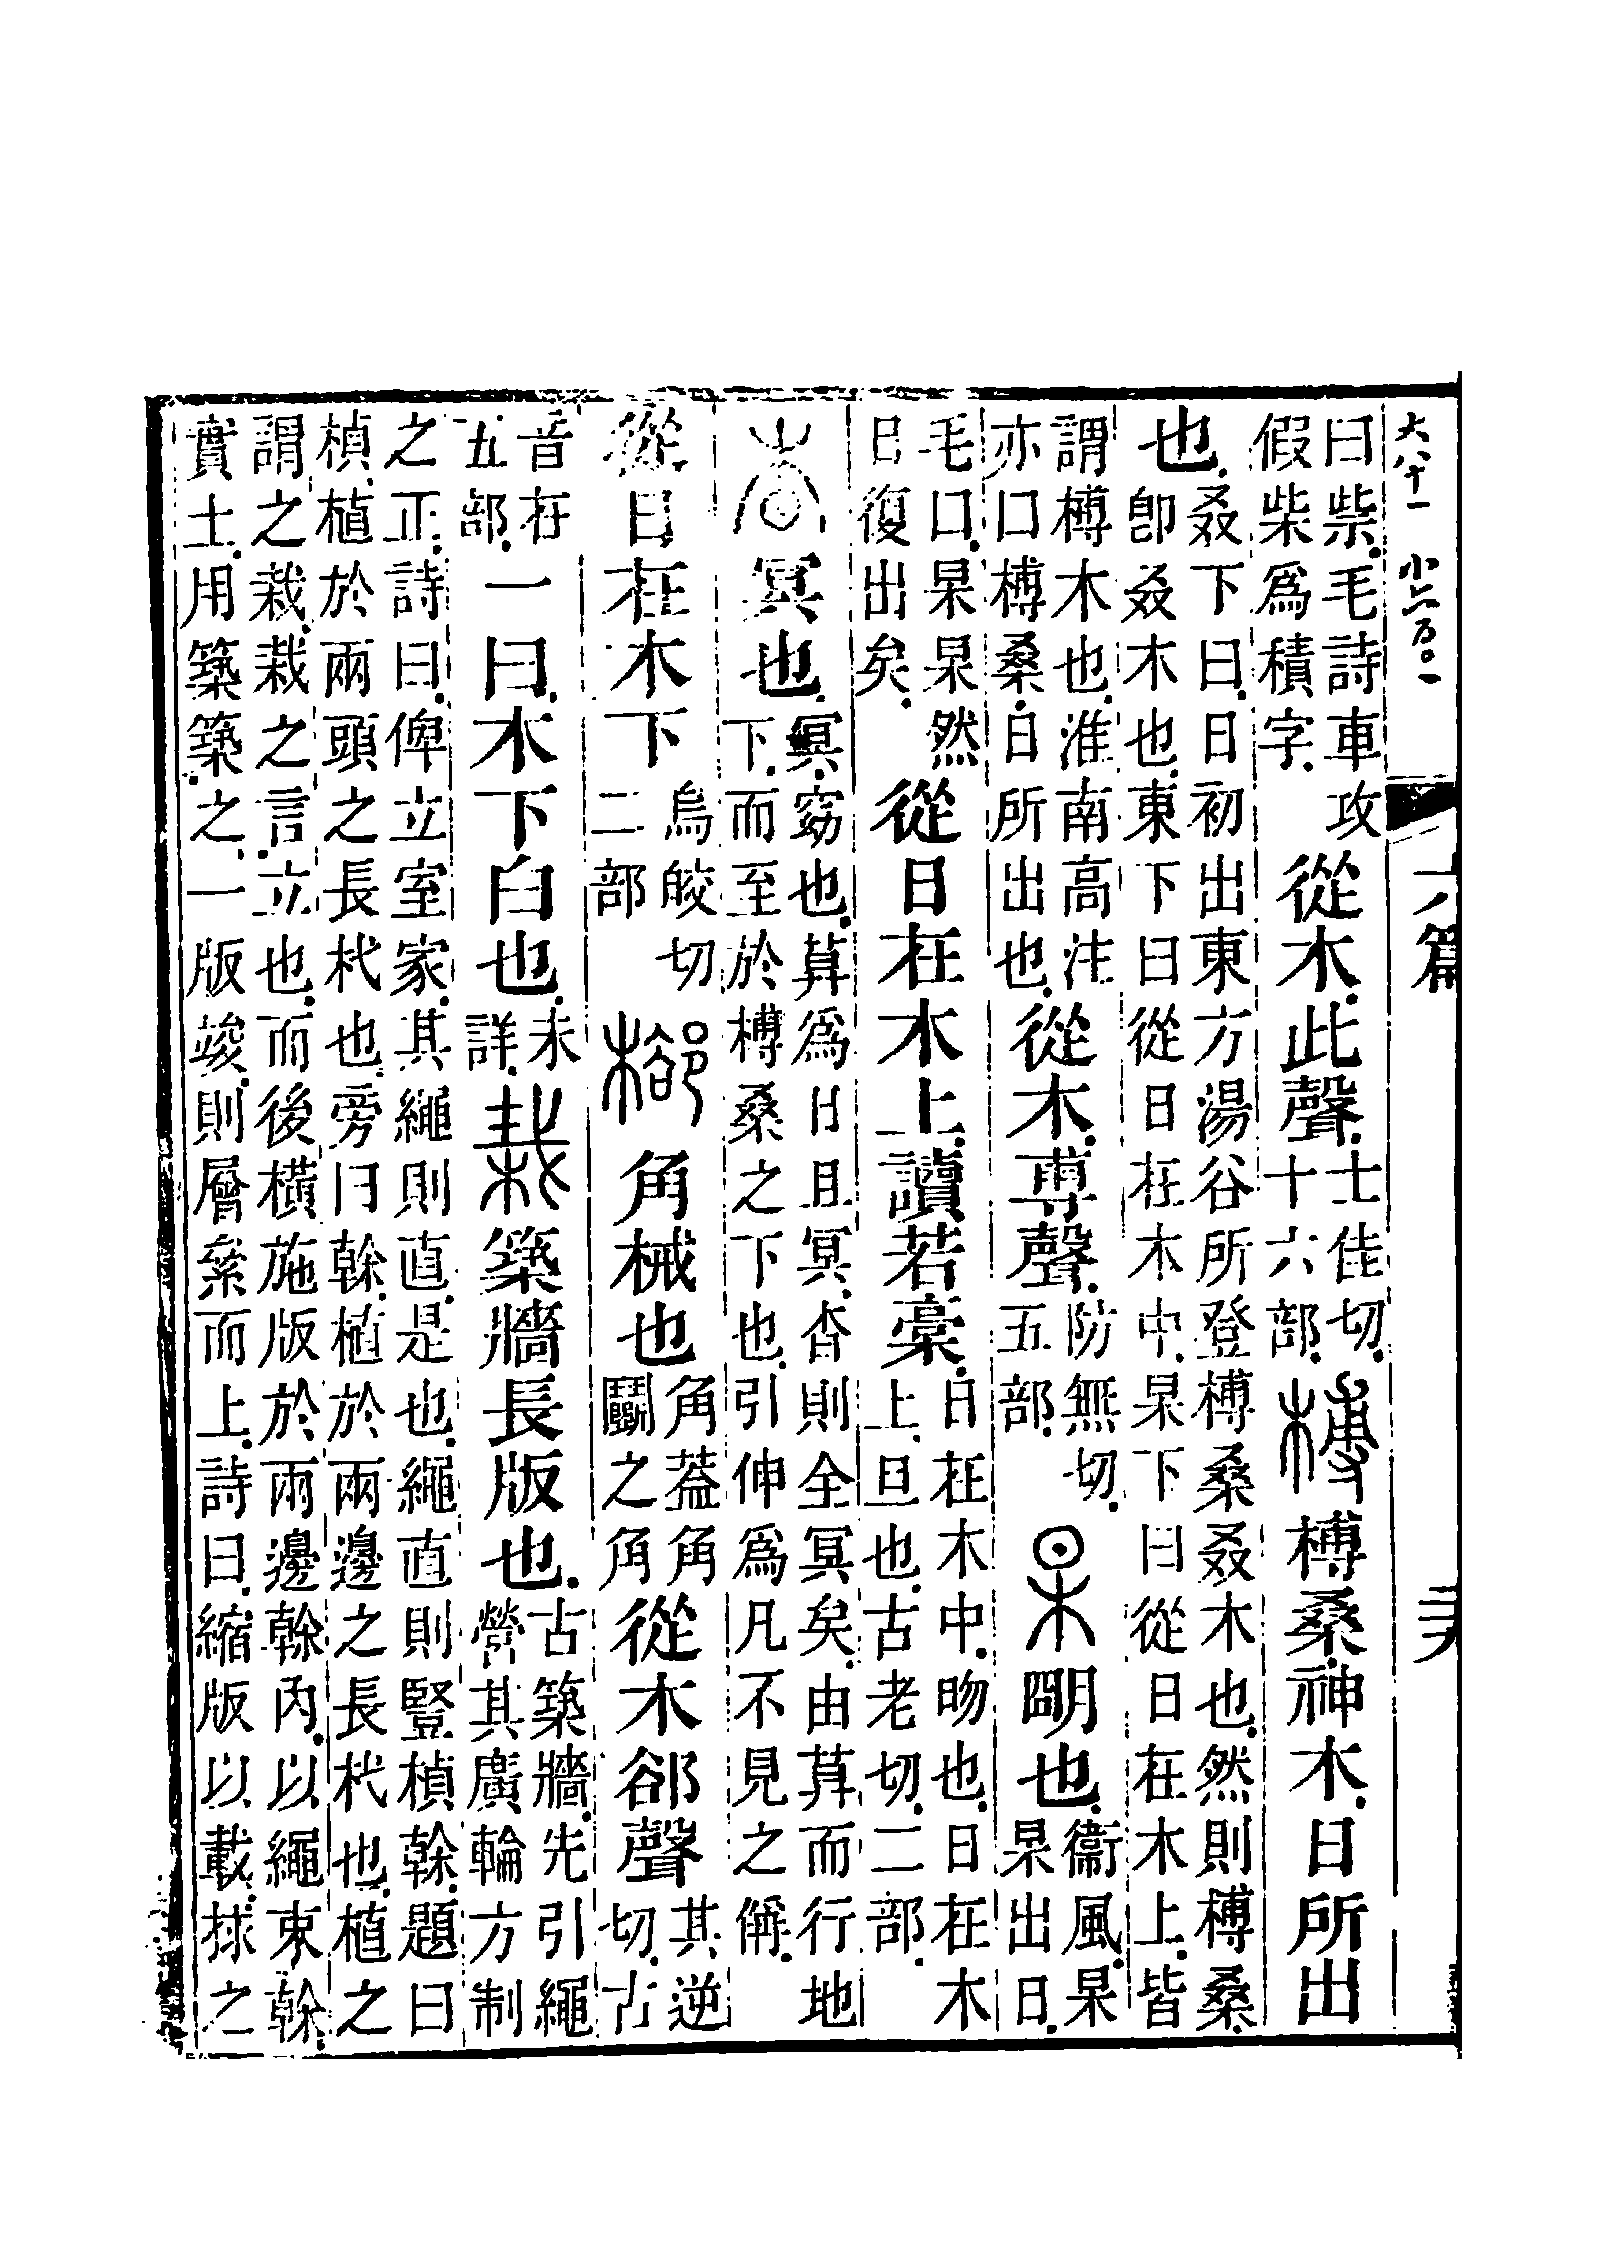 六篇
曰祡毛詩車攻
假柴爲積字
從木此聲
士佳切
十六部
榑
榑桑神木日所出
也
叒下曰日初出東方湯谷所登榑桑叒木也然則榑桑
卽叒木也東下曰從日在木中杲下曰從日在木上皆
謂榑木也淮南高注
亦曰榑桑日所出也
從木尃聲
防無切
五部
杲
朙也
衞風杲
杲出日
毛曰杲杲然
日復出矣
從日在木上讀若槀
日在木中昒也日在木
上旦也古老切二部
杳
冥也
冥窈也莫爲日且冥杳則全冥矣由莫而行地
下而至於榑桑之下也引伸爲凡不見之偁
從日在木下
烏皎切
二部
㮝
角械也
角葢角
鬭之角
從木郤聲
其逆
切古
音在
五部
一曰木下白也
未
詳
栽
築牆長版也
古築牆先引繩
營其廣輪方制
之正詩曰俾立室家其繩則直是也繩直則豎楨榦題曰
楨植於兩頭之長杙也旁曰榦植於兩邊之長杙也植之
謂之栽栽之言立也而後橫施版於兩邊榦內以繩束榦
實土用築築之一版竣則層絫而上詩曰縮版以載捄之